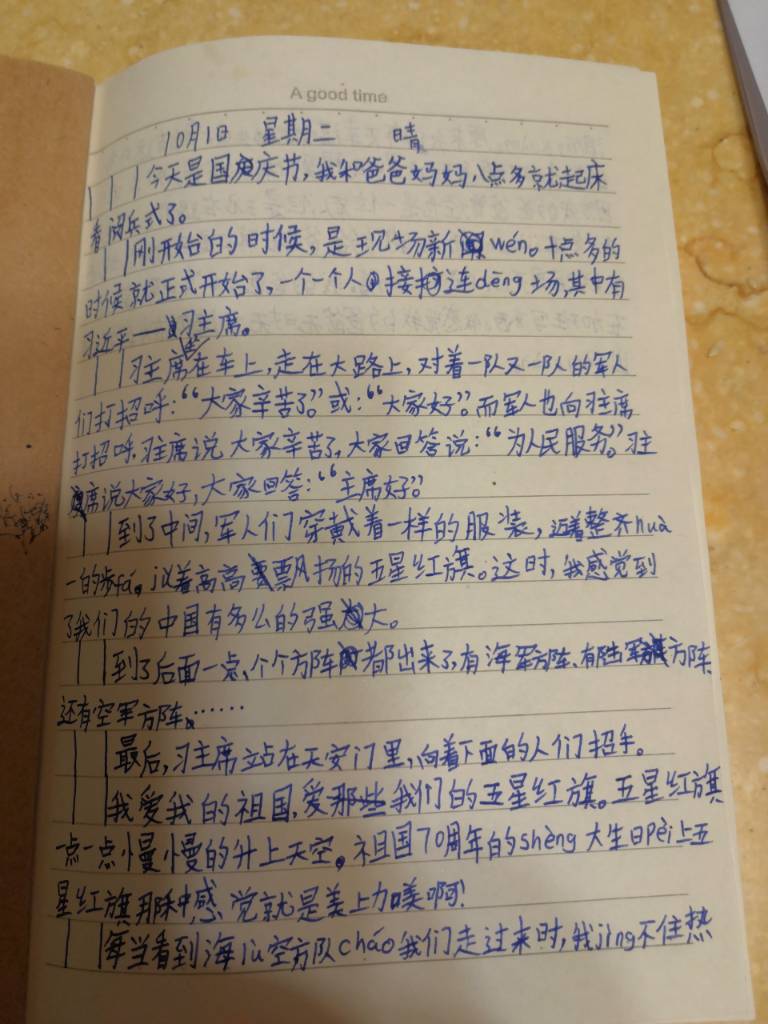 A good time
10月1日 星期二 晴
今天是国庆节,我和爸爸妈妈八点多就起床
看阅兵式了。
刚开始白的时候,是现场新wén。十点多的
时候就正式开始了,一个一个人接连dēng场,其中有
习近平——习主席。
习主席在车上,走在大路上,对着一队又一队的军人
们打招呼:“大家辛苦了。”或:“大家好。”而军人也向习主席
打招呼.习主席说大家辛苦了,大家回答说:“为人民服务。”习主
席说大家好,大家回答:“主席好。”
到了中间,军人们穿戴着一样的服装,迈着整齐huà
一的步fá,以着高高飘扬的五星红旗。这时,我感觉到
了我们的中国有多么的强大。
到了后面一点、个个方阵都出来了,有海军方阵、有陆军方阵
还有空军方阵、……
最后,习主席站在天安门里,向着下面的人们招手。
我爱我的祖国,爱那些我们的五星红旗。五星红旗
一点一点慢慢的升上天空。祖国70周年的shèng大生日pèi上五
星红旗那种感觉就是美上加美啊!
每当看到海lù空方队cháo我们走过来时,我jìng不住热